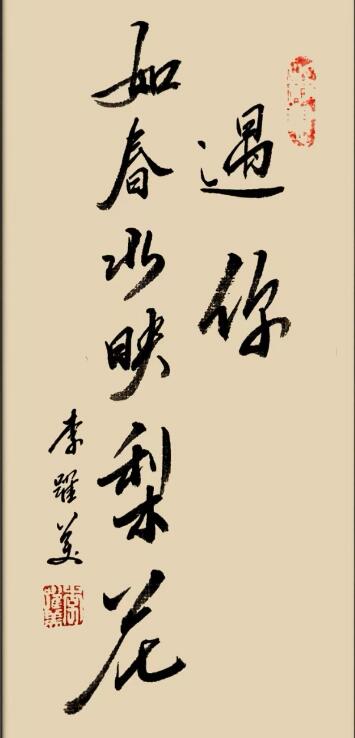 遇你
如春水映梨花
李躍美